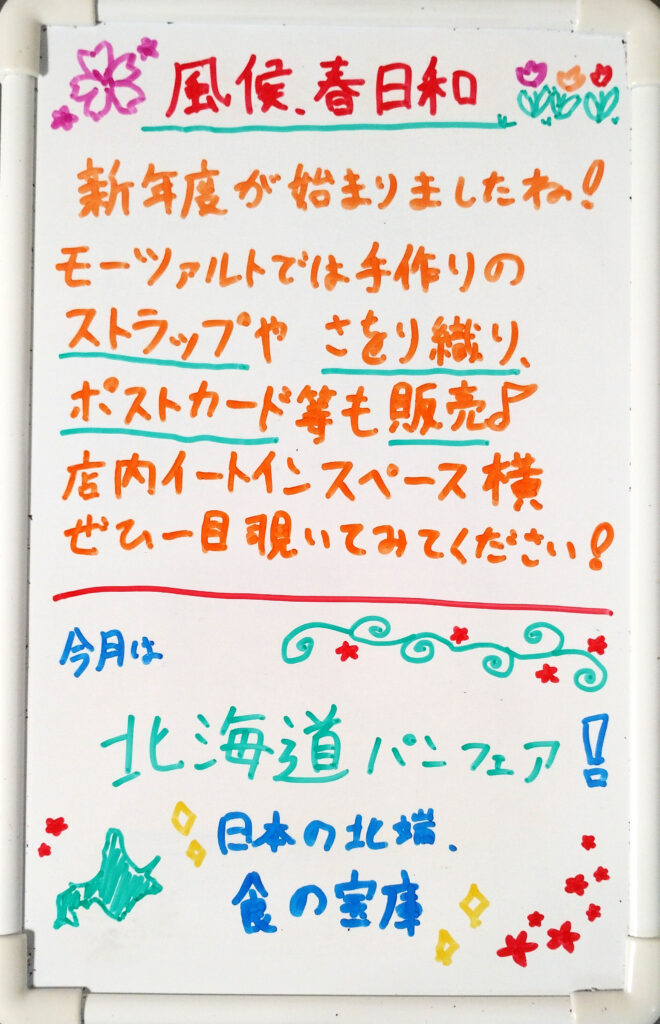 風候、春日和
新年度が始まりましたね!
モーツァルトでは手作りの
ストラップや さをり織り、
ポストカード等も販売♪
店内イートインスペース横
ぜひ一目覗いてみてください!
今月は
北海道パンフェア!
日本の北端、
食の宝庫